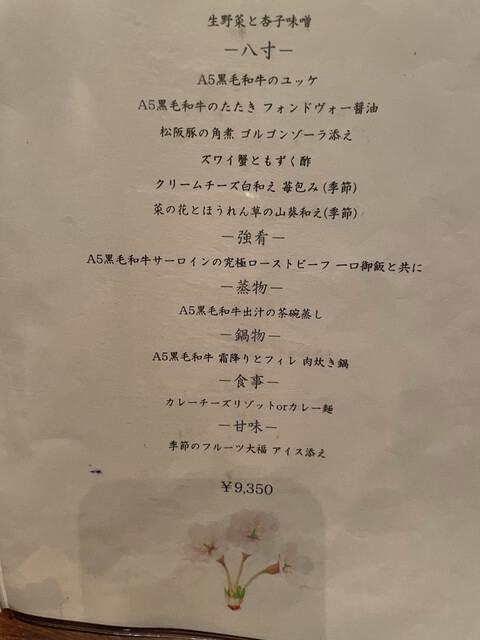 生野菜と杏子味噌
－八寸－
A5黒毛和牛のユッケ
A5黒毛和牛のたたき フォンドヴォー醤油
松阪豚の角煮 ゴルゴンゾーラ添え
ズワイ蟹ともずく酢
クリームチーズ白和え 苺包み(季節)
菜の花とほうれん草の山葵和え(季節)
－強肴－
A5黒毛和牛サーロインの究極ローストビーフ 一口御飯と共に
－蒸物－
A5黒毛和牛出汁の茶碗蒸し
－鍋物－
A5黒毛和牛 霜降りとフィレ 肉炊き鍋
－食事－
カレーチーズリゾットorカレー麺
－甘味－
季節のフルーツ大福 アイス添え
￥9,350